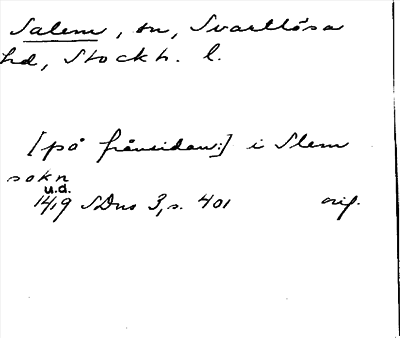 Salem, sn, Svartlösa
hd, Stockh. l.
[på frånsidan:] i Slem
sokn
u.d.
1419 SDns 3, s. 401 orig.